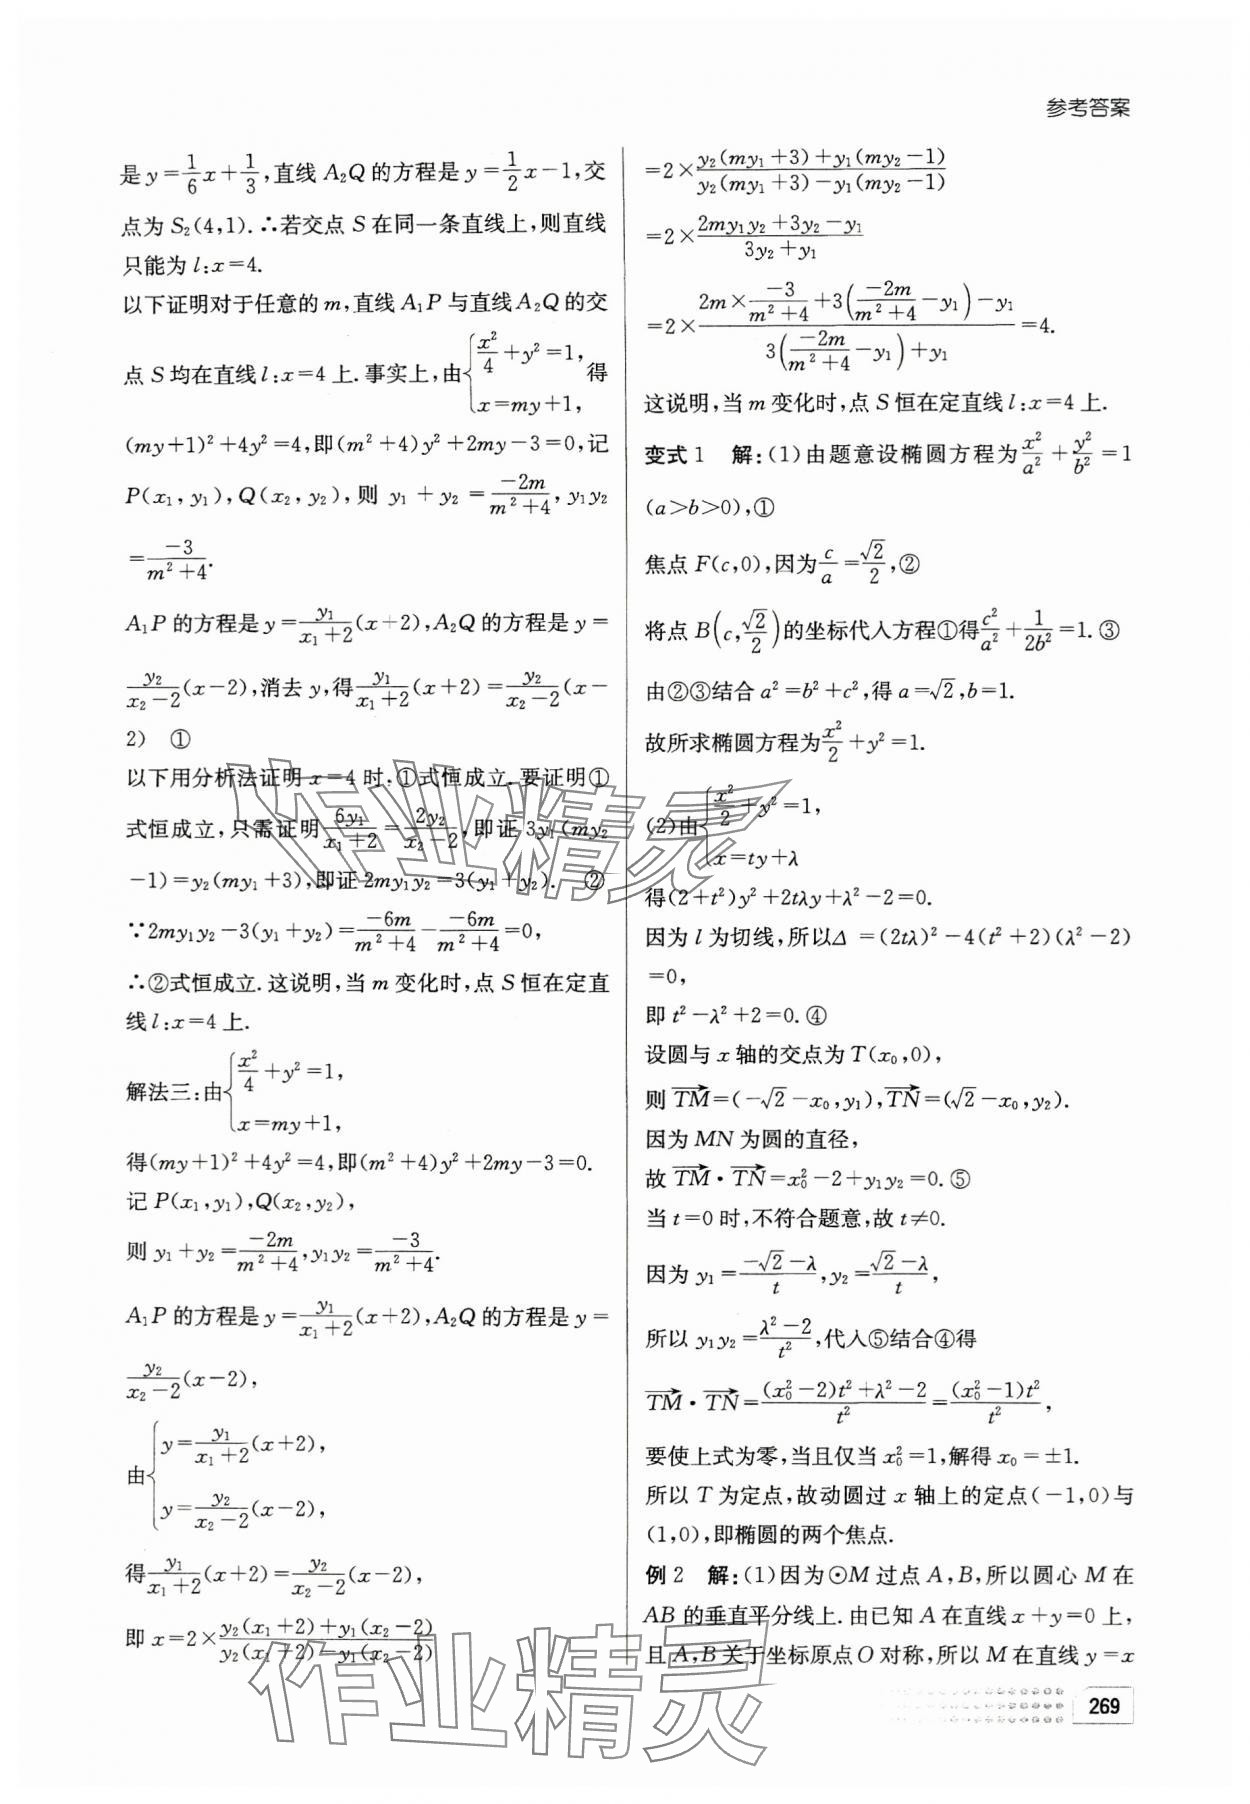 参考答案
是 y=1/6x+1/3,直线 A₂Q 的方程是 y=1/2x-1,交
点为 S₂(4,1).∴若交点 S 在同一条直线上,则直线
只能为 l:x=4.
以下证明对于任意的 m,直线 A₁P 与直线 A₂Q 的交
点 S 均在直线 l:x=4 上.事实上,由{x²/4+y²=1, x=my+1, 得
(my+1)²+4y²=4,即(m²+4)y²+2my-3=0,记
P(x₁,y₁),Q(x₂,y₂),则 y₁+y₂=-2m/(m²+4),y₁y₂
=-3/(m²+4).
A₁P 的方程是 y=y₁/(x₁+2)(x+2),A₂Q 的方程是 y=
y₂/(x₂-2)(x-2),消去 y,得y₁/(x₁+2)(x+2)=y₂/(x₂-2)(x-
2) ①
以下用分析法证明 x=4 时,①式恒成立.要证明①
式恒成立,只需证明6y₁/(x₁+2)=2y₂/(x₂-2),即证 3y₁(my₂
-1)=y₂(my₁+3),即证 2my₁y₂=3(y₁+y₂). ②
∵2my₁y₂-3(y₁+y₂)=-6m/(m²+4)-(-6m)/(m²+4)=0,
∴②式恒成立.这说明,当 m 变化时,点 S 恒在定直
线 l:x=4 上.
解法三:由{x²/4+y²=1, x=my+1,
得(my+1)²+4y²=4,即(m²+4)y²+2my-3=0.
记 P(x₁,y₁),Q(x₂,y₂),
则 y₁+y₂=-2m/(m²+4),y₁y₂=-3/(m²+4).
A₁P 的方程是 y=y₁/(x₁+2)(x+2),A₂Q 的方程是 y=
y₂/(x₂-2)(x-2),
由{y=y₁/(x₁+2)(x+2), y=y₂/(x₂-2)(x-2),
得y₁/(x₁+2)(x+2)=y₂/(x₂-2)(x-2),
即 x=2×[y₂(x₁+2)+y₁(x₂-2)]/[y₂(x₁+2)-y₁(x₂-2)]
=2×[y₂(my₁+3)+y₁(my₂-1)]/[y₂(my₁+3)-y₁(my₂-1)]
=2×(2my₁y₂+3y₂-y₁)/(3y₂+y₁)
=2×[2m×-3/(m²+4)+3(-2m/(m²+4)-y₁)-y₁]/[3(-2m/(m²+4)-y₁)+y₁]=4.
这说明,当 m 变化时,点 S 恒在定直线 l:x=4 上.
变式 1 解:(1)由题意设椭圆方程为x²/a²+y²/b²=1
(a>b>0),①
焦点 F(c,0),因为c/a=√2/2,②
将点 B(c,√2/2)的坐标代入方程①得c²/a²+1/2b²=1.③
由②③结合 a²=b²+c²,得 a=√2,b=1.
故所求椭圆方程为x²/2+y²=1.
(2)由{x²/2+y²=1, x=ty+λ
得(2+t²)y²+2tλy+λ²-2=0.
因为 l 为切线,所以Δ=(2tλ)²-4(t²+2)(λ²-2)
=0,
即 t²-λ²+2=0.④
设圆与 x 轴的交点为 T(x₀,0),
则 TM→=(-√2-x₀,y₁),TN→=(√2-x₀,y₂).
因为 MN 为圆的直径,
故 TM→·TN→=x₀²-2+y₁y₂=0.⑤
当 t=0 时,不符合题意,故 t≠0.
因为 y₁=(-√2-λ)/t,y₂=(√2-λ)/t,
所以 y₁y₂=(λ²-2)/t²,代入⑤结合④得
TM→·TN→=[(x₀²-2)t²+λ²-2]/t²=(x₀²-1)t²/t²,
要使上式为零,当且仅当 x₀²=1,解得 x₀=±1.
所以 T 为定点,故动圆过 x 轴上的定点(-1,0)与
(1,0),即椭圆的两个焦点.
例 2 解:(1)因为⊙M 过点 A,B,所以圆心 M 在
AB 的垂直平分线上.由已知 A 在直线 x+y=0 上,
且 A,B 关于坐标原点 O 对称,所以 M 在直线 y=x
作业精灵
作业精灵
269